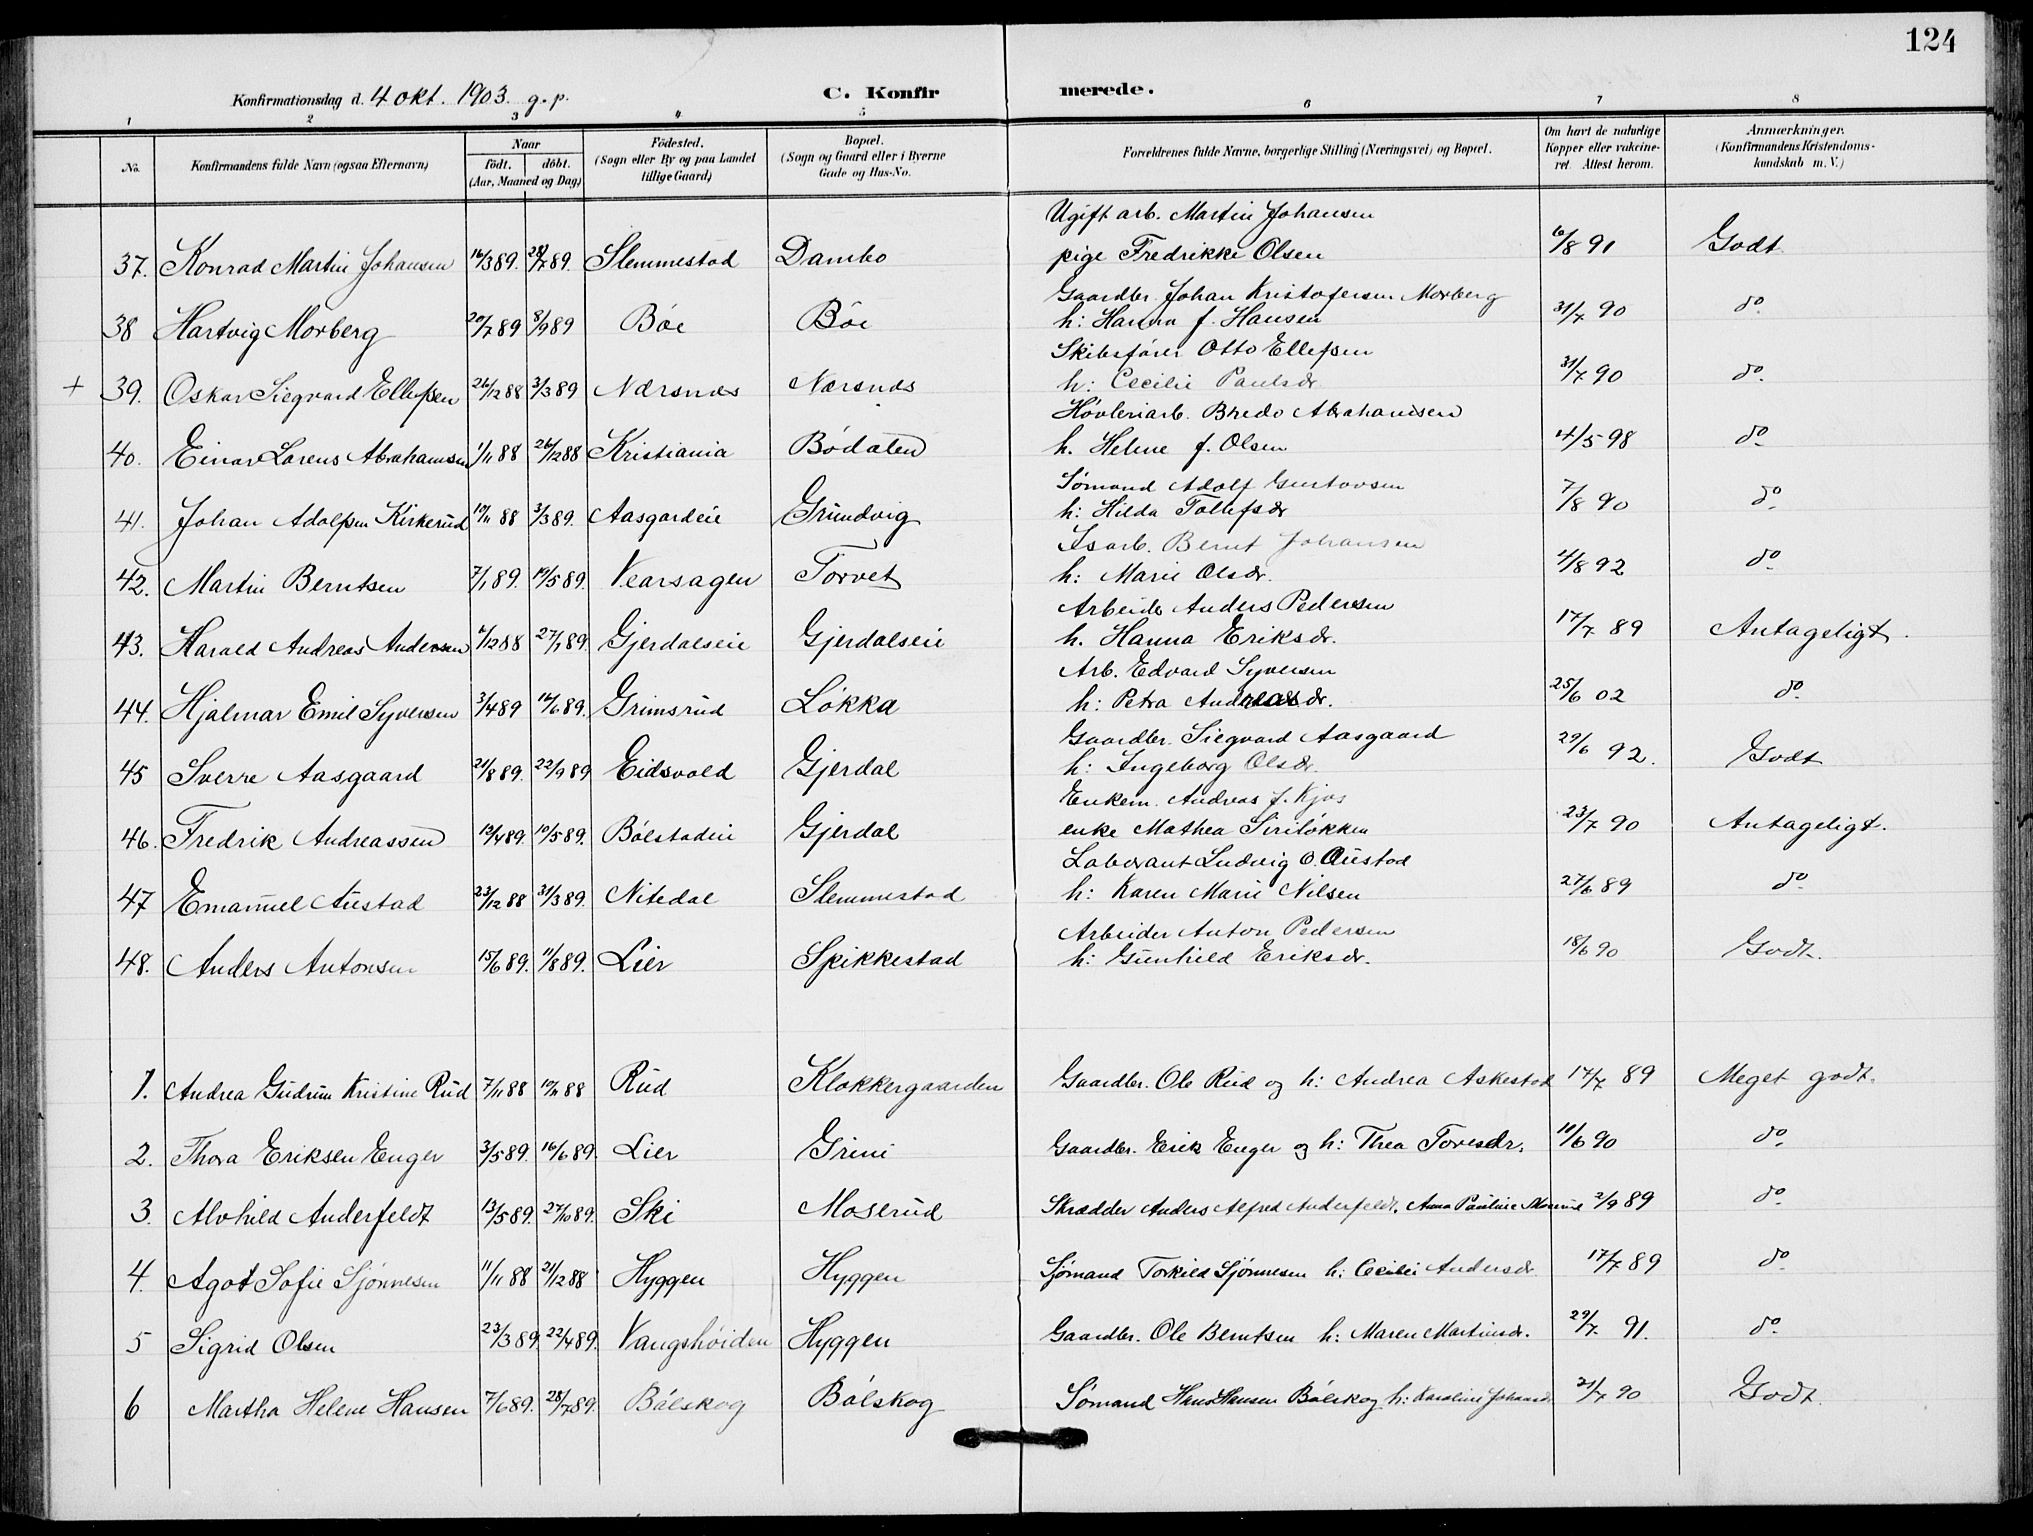 124
Konfirmationsdag d. 4 okt. 1903. g. p. C. Konfirmerede.
1 2 3 4 5 6 7 8
No. Konfirmandens fulde Navn (ogsaa Efternavn) Naar født. døbt. (Aar, Maaned og Dag) Fødested. (Sogn eller By og paa Landet tillige Gaard) Bopæl. (Sogn og Gaard eller i Byerne Gade og Hus-No. Forældrenes fulde Navne, borgerlige Stilling (Næringsvei) og Bopæl. Om havt de naturlige Kopper eller vakcineret. Attest herom. Anmærkninger. (Konfirmandens Kristendomskundskab m. V.)
Ugift arb. Martin Johansen
37. Konrad Martin Johansen 16/3 89. 28/7 89. Slemmestad Dambo pige Fredrikke Olsen 6/8 91 Godt
Gaardbr. Johan Kristofersen Morberg
38 Hartvig Morberg 20/7 89 8/9 89 Bøe Bøe h: Hanna f. Hansen 31/7 90 do
Skibsfører Otto Ellefsen
+ 39. Oskar Siegvard Ellefsen 26/12 88 3/3 89 Nærsnes Nærsnes h: Cecilie Paulsdr 31/7 90 do
Høvleriarb. Bredo Abrahamsen
40. Einar Lorens Abrahamsen 1/11 88 26/12 88 Kristiania Bødalen h. Helene f. Olsen 4/5 98 do
Sømand Adolf Gustavsen
41. Johan Adolfsen Kirkerud 10/11 88 3/3 89. Aasgardeie Grundvig h: Hilda Tollefsdr 7/8 90 do
Isarb. Bernt Johansen
42. Martin Berntsen 7/1 89. 19/5 89. Vearsagen Torvet h: Marie Olsdr. 4/8 92 do
Arbeider Anders Pedersen
43. Harald Andreas Andersen 4/12 88 27/1 89. Gjerdalseie Gjerdalseie h. Hanna Eriksdr. 17/7 89 Antageligt.
Arb. Edvard Syversen
44. Hjalmar Emil Syversen 3/4 89 16/6 89. Grimsrud Løkka h: Petra Andreasdr. 25/6 02 do
Gaardbr. Siegvard Aasgaard
45 Sverre Aasgaard 21/8 89. 22/9 89 Eidsvold Gjerdal h: Ingeborg Olsdr. 29/6 92. Godt
Enkem. Andreas f. Kjos
46. Fredrik Andreassen 13/4 89. 10/5 89. Bølstadeie Gjerdal enke Mathea Siriløkken 23/7 90 Antageligt.
Laborant Ludvig O. Austad
47 Emanuel Austad 23/12 88 31/3 89. Nitedal Slemmestad h: Karen Marie Nilsen 27/6 89 do
Arbeider Anton Pedersen
48. Anders Antonsen 15/6 89. 11/8 89. Lier Spikkestad h: Gunhild Eriksdr. 18/6 90 Godt.
1. Andrea Gudrun Kristine Rud 7/11 88 10/11 88 Rud Klokkergaarden Gaardbr. Ole Rud og h: Andrea Askestad 17/7 89 Meget godt.
2. Thora Eriksen Enger 3/5 89. 16/6 89. Lier Grini Gaardbr. Erik Enger og h: Thea Toresdr. 10/6 90 do
3. Alvhild Anderfeldt 13/5 89. 27/10 89. Ski Moserud Skrædder Anders Alfred Anderfeldt. Anna Pauline 2/9 89 do
4. Agot Sofie Sjønnesen 11/11 88 21/12 88 Hyggen Hyggen Sjømand Torkild Sjønnesen h: Cecilie Andersdr. 17/7 89 do
5 Sigrid Olsen 23/3 89. 22/4 89. Vangshøiden Hyggen Gaardbr. Ole Berntsen h: Maren Martinsdr. 29/7. 91. do
6 Martha Helene Hansen 7/6 89. 28/7 89. Bølskog Bølskog Sømand Hans Hansen Bølskog h: Karoline Johansdr 21/7 90 Godt.